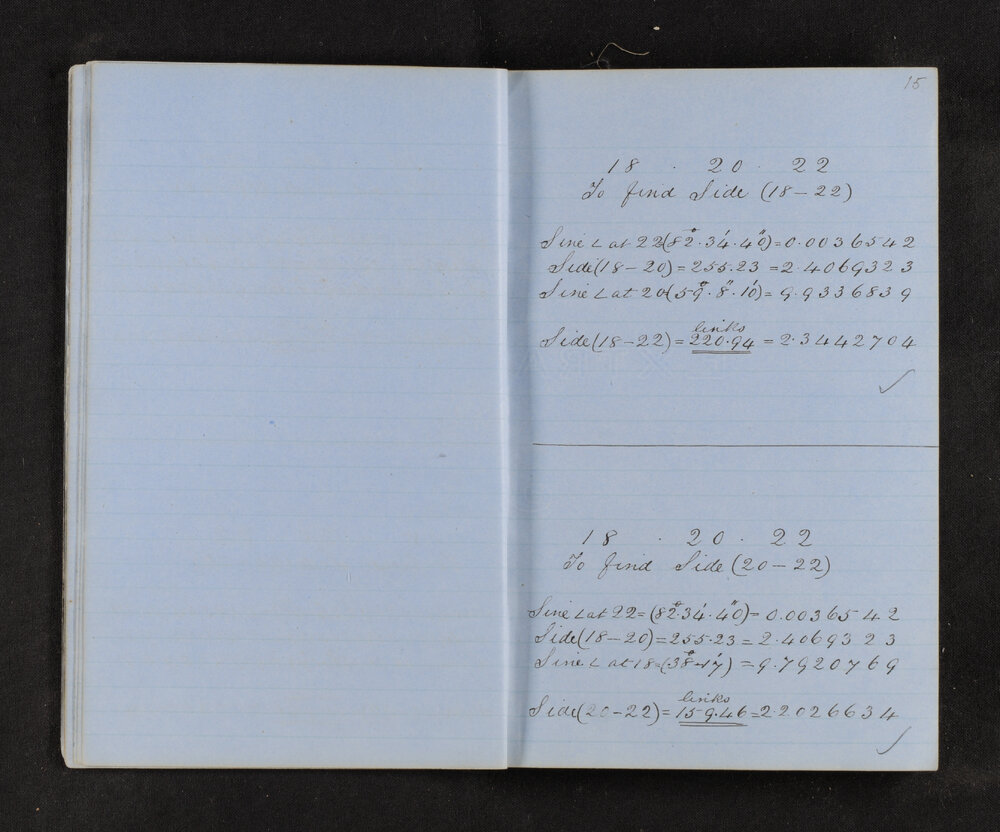 15
18 . 20 . 22
To find Side (18 – 22)
Sine ∠ at 22 (82°. 34'. 40") = 0.0036542
Side (18 – 20) = 255.23 = 2.4069323
Sine ∠ at 20 (59°. 8". 10') = 9.9336839
links
Side (18 – 22) = 220.94 = 2.3442704
✓
18 . 20 . 22
To find Side (20 – 22)
Sine ∠ at 22 = (82°. 34'. 40") = 0.0036542
Side (18 – 20) = 255.23 = 2.4069323
Sine ∠ at 18 = (38° 17') = 9.7920769
links
Side (20 – 22) = 159.46 = 2.2026634
✓